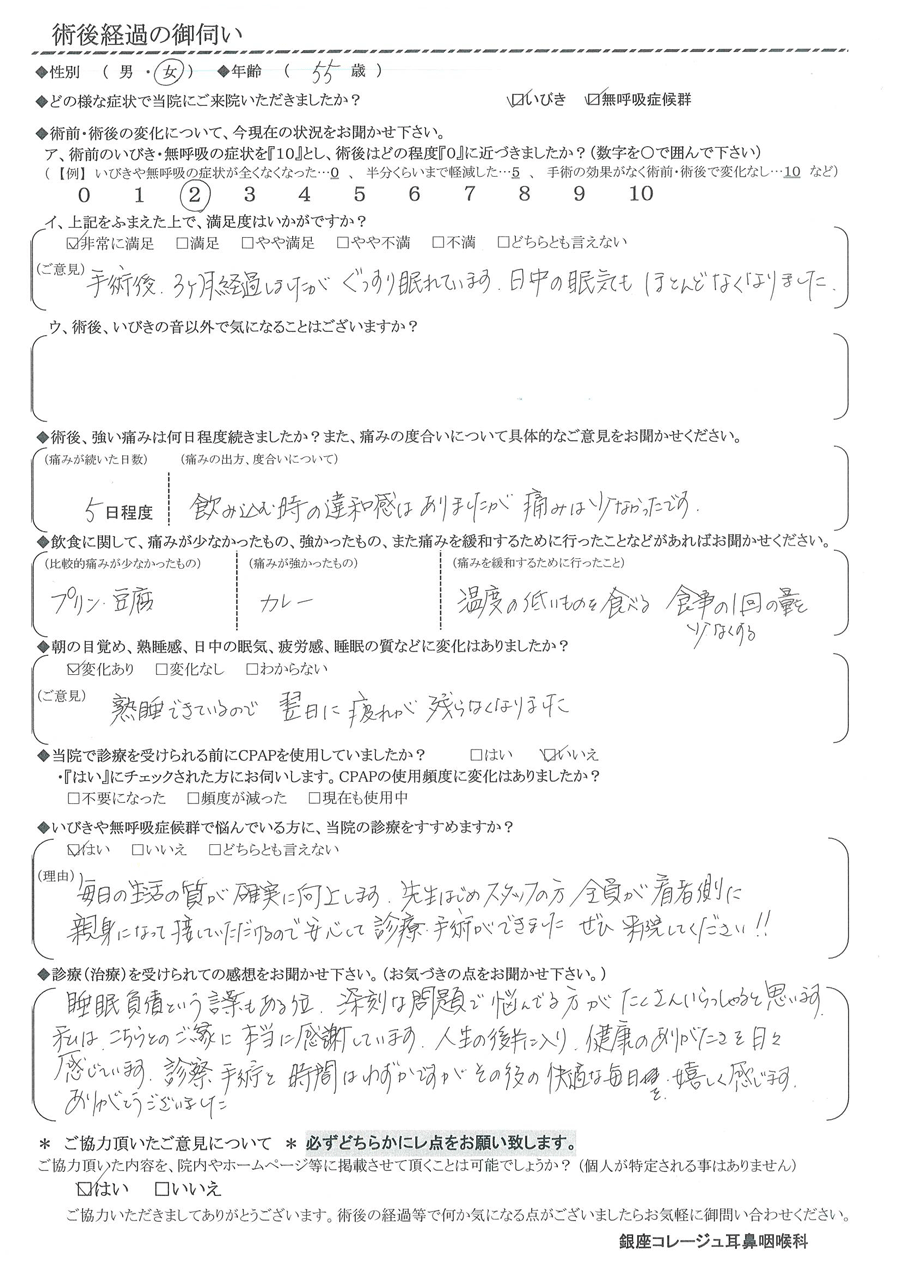 術後経過の御伺い
◆性別 （ 男 ・ 女 ） ◆年齢 （ 55 歳 ）
◆どの様な症状で当院にご来院いただきましたか？ ☑いびき ☑無呼吸症候群
◆術前・術後の変化について、今現在の状況をお聞かせ下さい。
ア、術前のいびき・無呼吸の症状を『10』とし、術後はどの程度『0』に近づきましたか？（数字を〇で囲んで下さい）
（【例】いびきや無呼吸の症状が全くなくなった…0 、 半分くらいまで軽減した…5 、 手術の効果がなく術前・術後で変化なし…10 など）
0 1 2 3 4 5 6 7 8 9 10
イ、上記をふまえた上で、満足度はいかがですか？
☑非常に満足 □満足 □やや満足 □やや不満 □不満 □どちらとも言えない
（ご意見） 手術後、3ヶ月経過しましたが ぐっすり眠れています。日中の眠気も ほとんどなくなりました。
ウ、術後、いびきの音以外で気になることはございますか？
◆術後、強い痛みは何日程度続きましたか？また、痛みの度合いについて具体的なご意見をお聞かせください。
（痛みが続いた日数） （痛みの出方、度合いについて）
5 日程度 飲み込む時の違和感はありましたが 痛みは少なかったです。
◆飲食に関して、痛みが少なかったもの、強かったもの、また痛みを緩和するために行ったことなどがあればお聞かせください。
（比較的痛みが少なかったもの） （痛みが強かったもの） （痛みを緩和するために行ったこと）
プリン・豆腐 カレー 温度の低いものを食べる 食事の1回の量を
少なくする
◆朝の目覚め、熟睡感、日中の眠気、疲労感、睡眠の質などに変化はありましたか？
☑変化あり □変化なし □わからない
（ご意見） 熟睡できているので 翌日に疲れが 残らなくなりました
◆当院で診療を受けられる前にCPAPを使用していましたか？ □はい ☑いいえ
・『はい』にチェックされた方にお伺いします。CPAPの使用頻度に変化はありましたか？
□不要になった □頻度が減った □現在も使用中
◆いびきや無呼吸症候群で悩んでいる方に、当院の診療をすすめますか？
☑はい □いいえ □どちらとも言えない
（理由） 毎日の生活の質が確実に向上します。先生はじめスタッフの方 全員が 看者側に
親身になって接していただけるので安心して診療・手術ができました ぜひ 来院してください!!
◆診療（治療）を受けられての感想をお聞かせ下さい。（お気づきの点をお聞かせ下さい。）
睡眠負債という言葉もある位、深刻な問題で悩んでる方がたくさんいらっしゃると思います。
私は、こちらとのご縁に本当に感謝しています。人生の後半に入り、健康のありがたさを日々
感じています。診察 手術と 時間はわずかですが その後の快適な毎日を、嬉しく感じます。
ありがとうございました
＊ ご協力頂いたご意見について ＊ 必ずどちらかにレ点をお願い致します。
ご協力頂いた内容を、院内やホームページ等に掲載させて頂くことは可能でしょうか？（個人が特定される事はありません）
☑はい □いいえ
ご協力いただきましてありがとうございます。術後の経過等で何か気になる点がございましたらお気軽に御問い合わせください。
銀座コレージュ耳鼻咽喉科